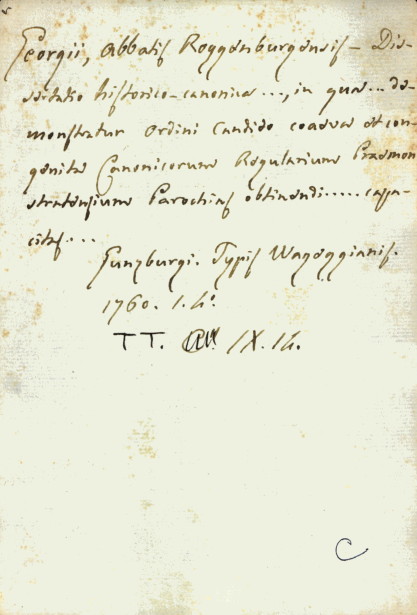 Georgii, Abbatis Roggenburgensis – Dis-
sertatio historico-canonica ..., in qua ... de-
monstratur Ordini Candido coaeva et con-
genita Canonicorum Regularium Praemon
stratensium Parochias obtinendi ..... capa-
citas ...
Gunzburgi. Typis Wageggianis.
1760. 1. 4°.
TT. IX. 14.
C